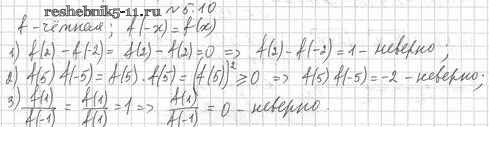 reshebnik5-11.ru № 5.10
f - чётная; f(-x) = f(x)
1) f(2) - f(-2) = f(2) - f(2) = 0 => f(2) - f(-2) = 1 - неверно;
2) f(5) f(-5) = f(5) · f(5) = (f(5))² ⩾ 0 => f(5) f(-5) = -2 - неверно;
3) f(1)/f(-1) = f(1)/f(1) = 1 => f(1)/f(-1) = 0 - неверно.